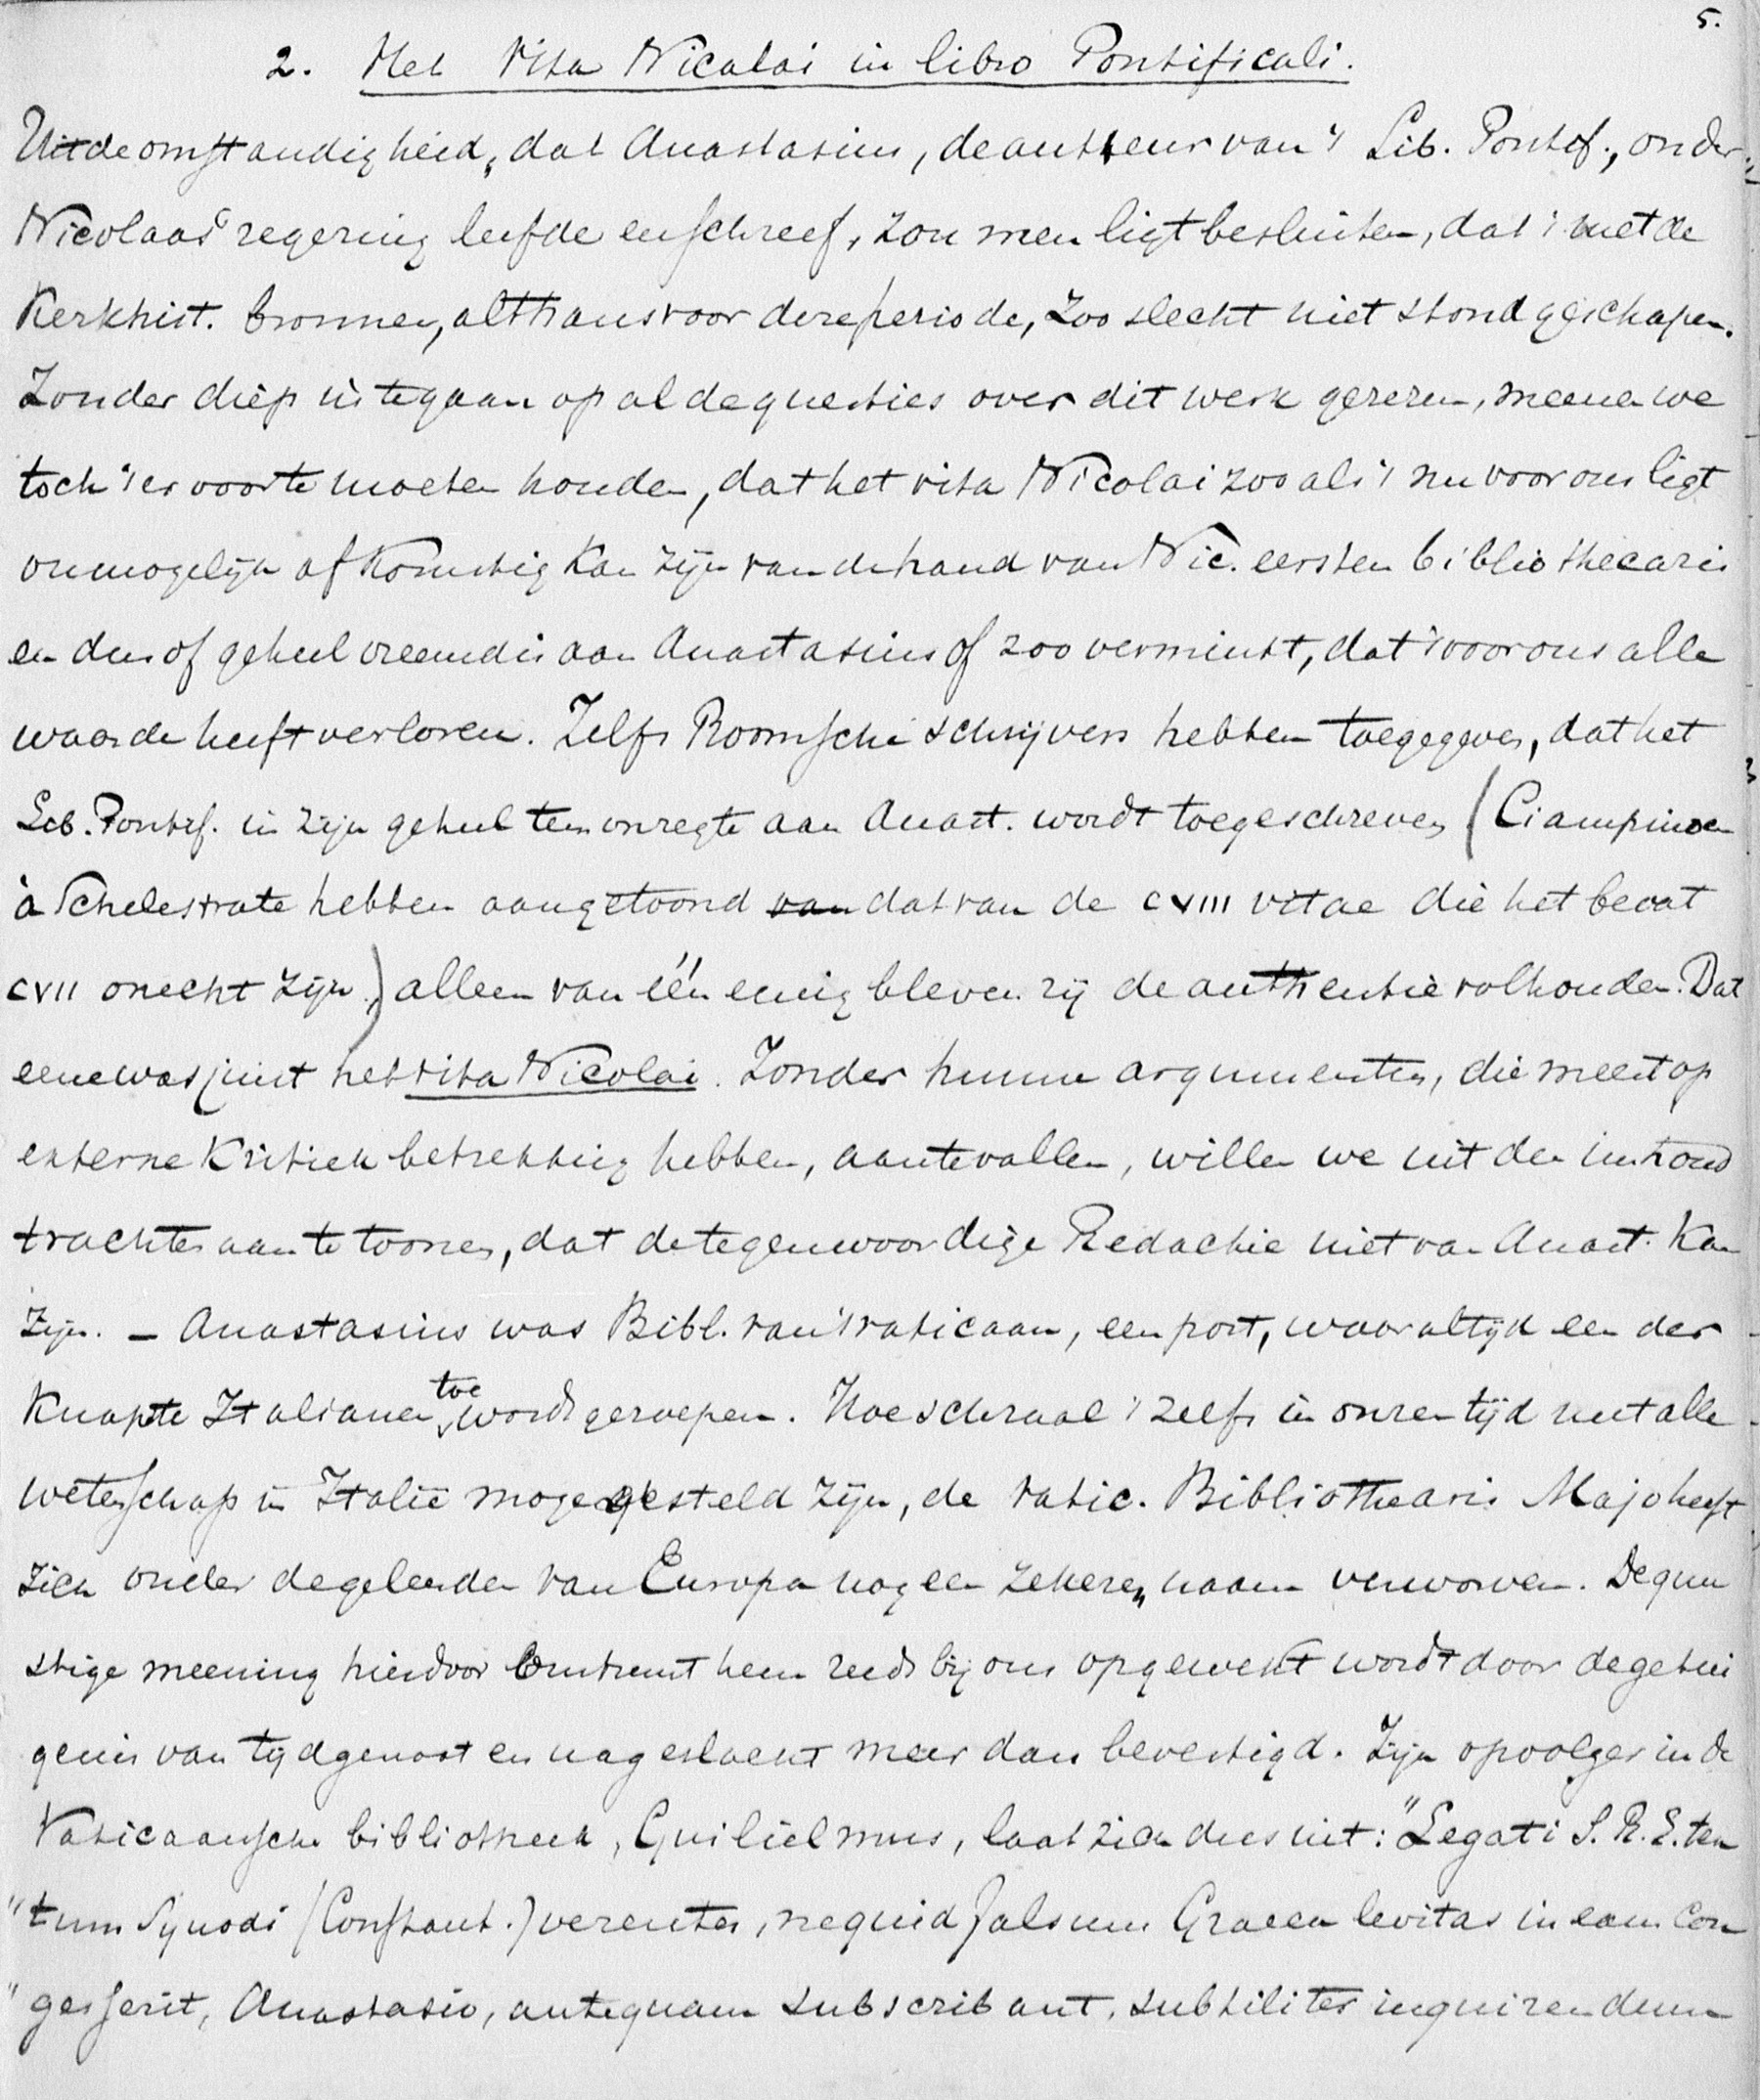 5.
2. Het Vita Nicolai in libro Pontificali.
Uit de omstandigheid, dat Anastasius, de autheur van 't Lib. Pontif., onder
Nicolaas' regering leefde en schreef, zou men ligt besluiten, dat 't met de
Kerkhist. bronnen, althans voor deze periode, zoo slecht niet stond geschapen.
Zonder diep in te gaan op al de questies over dit werk gerezen, meenen we
toch 't er voor te moeten houden, dat het vita Nicolai zooals 't nu voor ons ligt
onmogelijk afkomstig kan zijn van de hand van Nic. eersten bibliothecaris
en dus of geheel vreemd is aan Anastasius of zoo verminkt, dat 't voor ons alle
waarde heeft verloren. Zelfs Roomsche schrijvers hebben toegegeven, dat het
Lib. Pontif. in zijn geheel ten onregte aan Anast. wordt toegeschreven (Ciampinoen
à Schelestrate hebben aangetoond van dat van de CVIII vitae die het bevat
CVII onecht zijn,) alleen van één eenig bleven zij de authentie volhouden. Dat
eene was juist het vita Nicolai. Zonder hunne argumenten, die meest op
externe Kritiek betrekking hebben, aantevallen, willen we uit den inhoud
trachten aan te toonen, dat de tegenwoordige Redactie niet van Anast. kan
zijn. – Anastasius was Bibl. van 't Vaticaan, een post, waar altijd een der
knapste Italianen toe wordt geroepen. Hoe schraal 't zelfs in onzen tijd met alle
wetenschap in Italië moge gesteld zijn, de Vatic. Bibliothecaris Majo heeft
zich onder de geleerden van Europa nog een zekeren naam verworven. De gun
stige meening hierdoor omtrent hem reeds bij ons opgewekt wordt door de getui
genis van tijdgenoot en nageslacht meer dan bevestigd. Zijn opvolger in de
Vaticaansche bibliotheek, Guilielmus, laat zich dus uit: "Legati S. R. E. tan
"tum Synodi (Constant.) verentes, nequid falsum Graeca levitas in eam con
"gesserit, Anastasio, antequam subscribant, subtiliter inquirendum